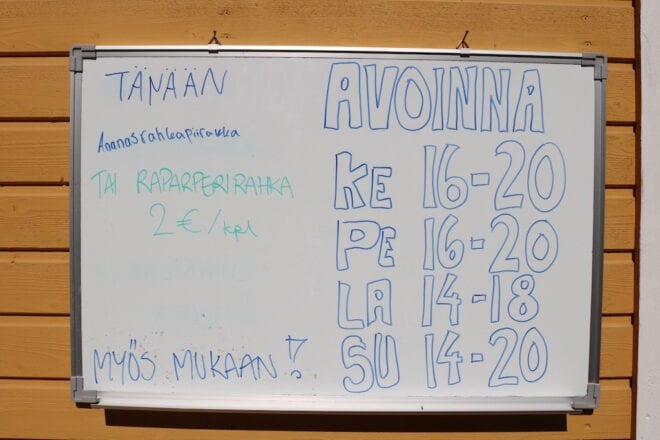 TÄNÄÄN
Ananasrahkapiirakka
TAI RAPARPERIRAHKA
2€/kpl
MYÖS MUKAAN!
AVOINNA
KE 16-20
PE 16-20
LA 14-18
SU 14-20